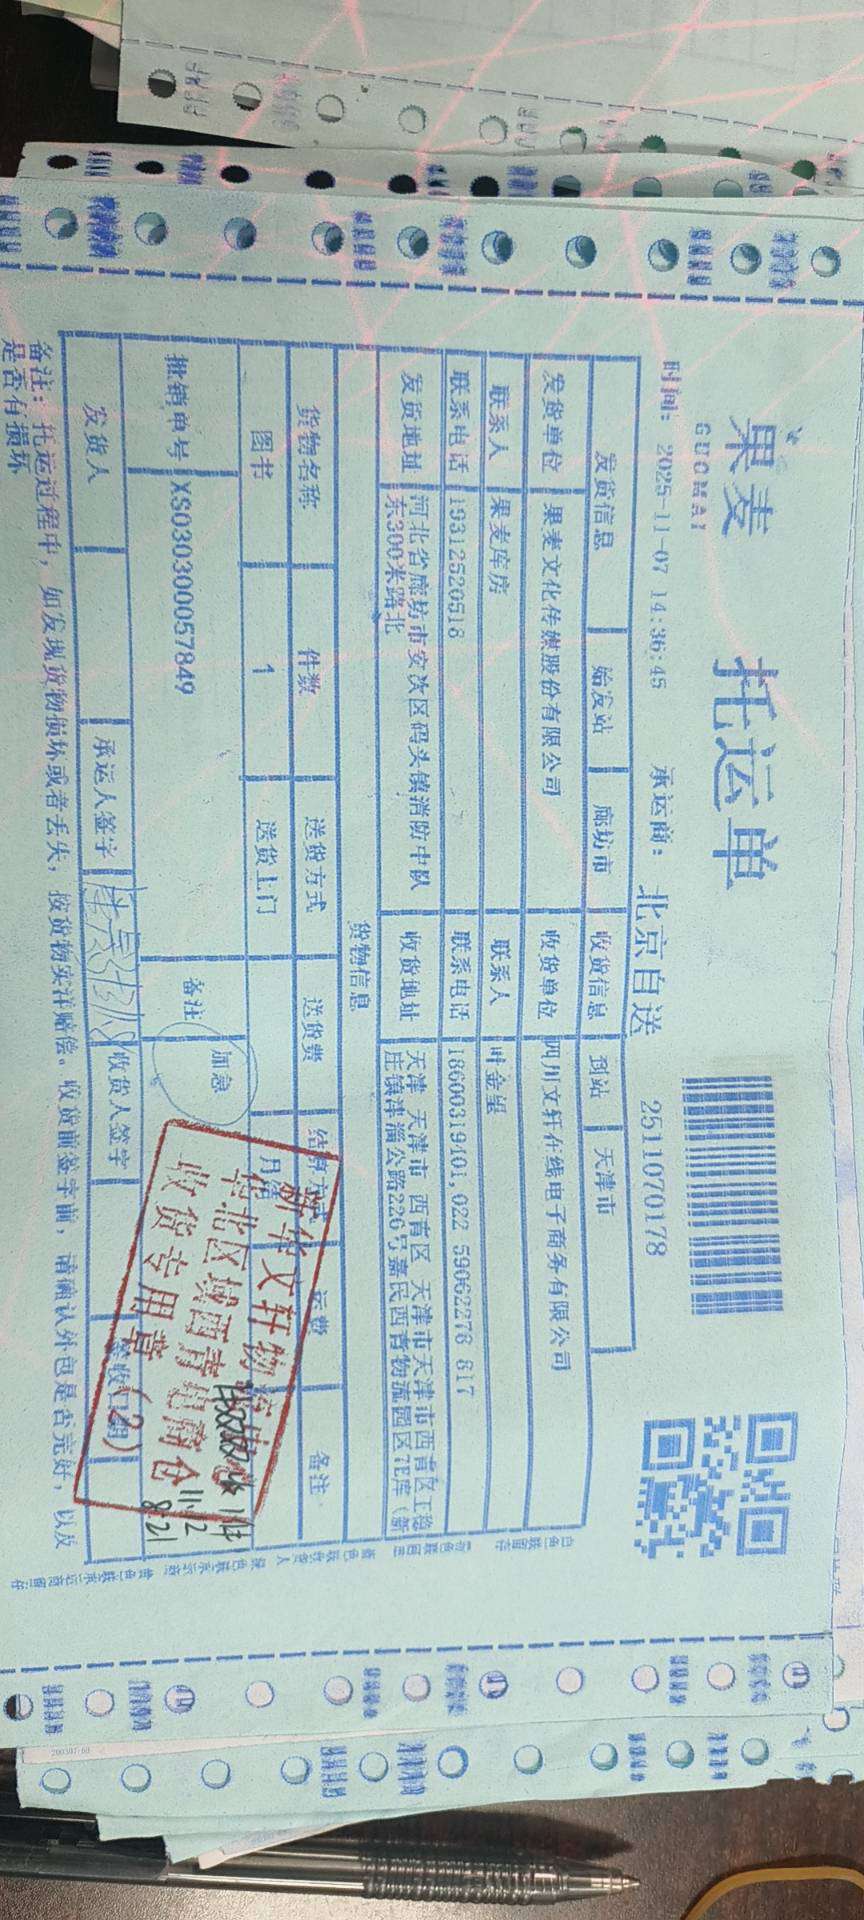 果麦
GUOMAI
托运单
时间: 2025-11-07 14:36:45
承运商: 北京自送
2511070178
发货信息 始发站 廊坊市 收货信息 到站 天津市
发货单位 果麦文化传媒股份有限公司 收货单位 四川文轩在线电子商务有限公司
联系人 果麦库房 联系人 叶金星
联系电话 19312520518 联系电话 18600319401,022 59062278 817
发货地址 河北省廊坊市安次区码头镇消防中队
东300米路北
收货地址 天津 天津市 西青区 天津市天津市西青区王稳
庄镇津淄公路226号嘉民西青物流园区7E库(新
货物信息
货物名称 件数 送货方式 送货费 结算方式 运费 备注
图书 1 送货上门 月结
批销单号 XS030300057849 备注 加急
发货人 承运人签字 收货人签字 签收日期
新华文轩物流
华北区域西青电商仓
收货专用章(2)
1件
11.12
8:21
备注: 托运过程中, 如发现货物损坏或者丢失, 按货物实洋赔偿。收货前签字前, 请确认外包是否完好, 以及
是否有损坏